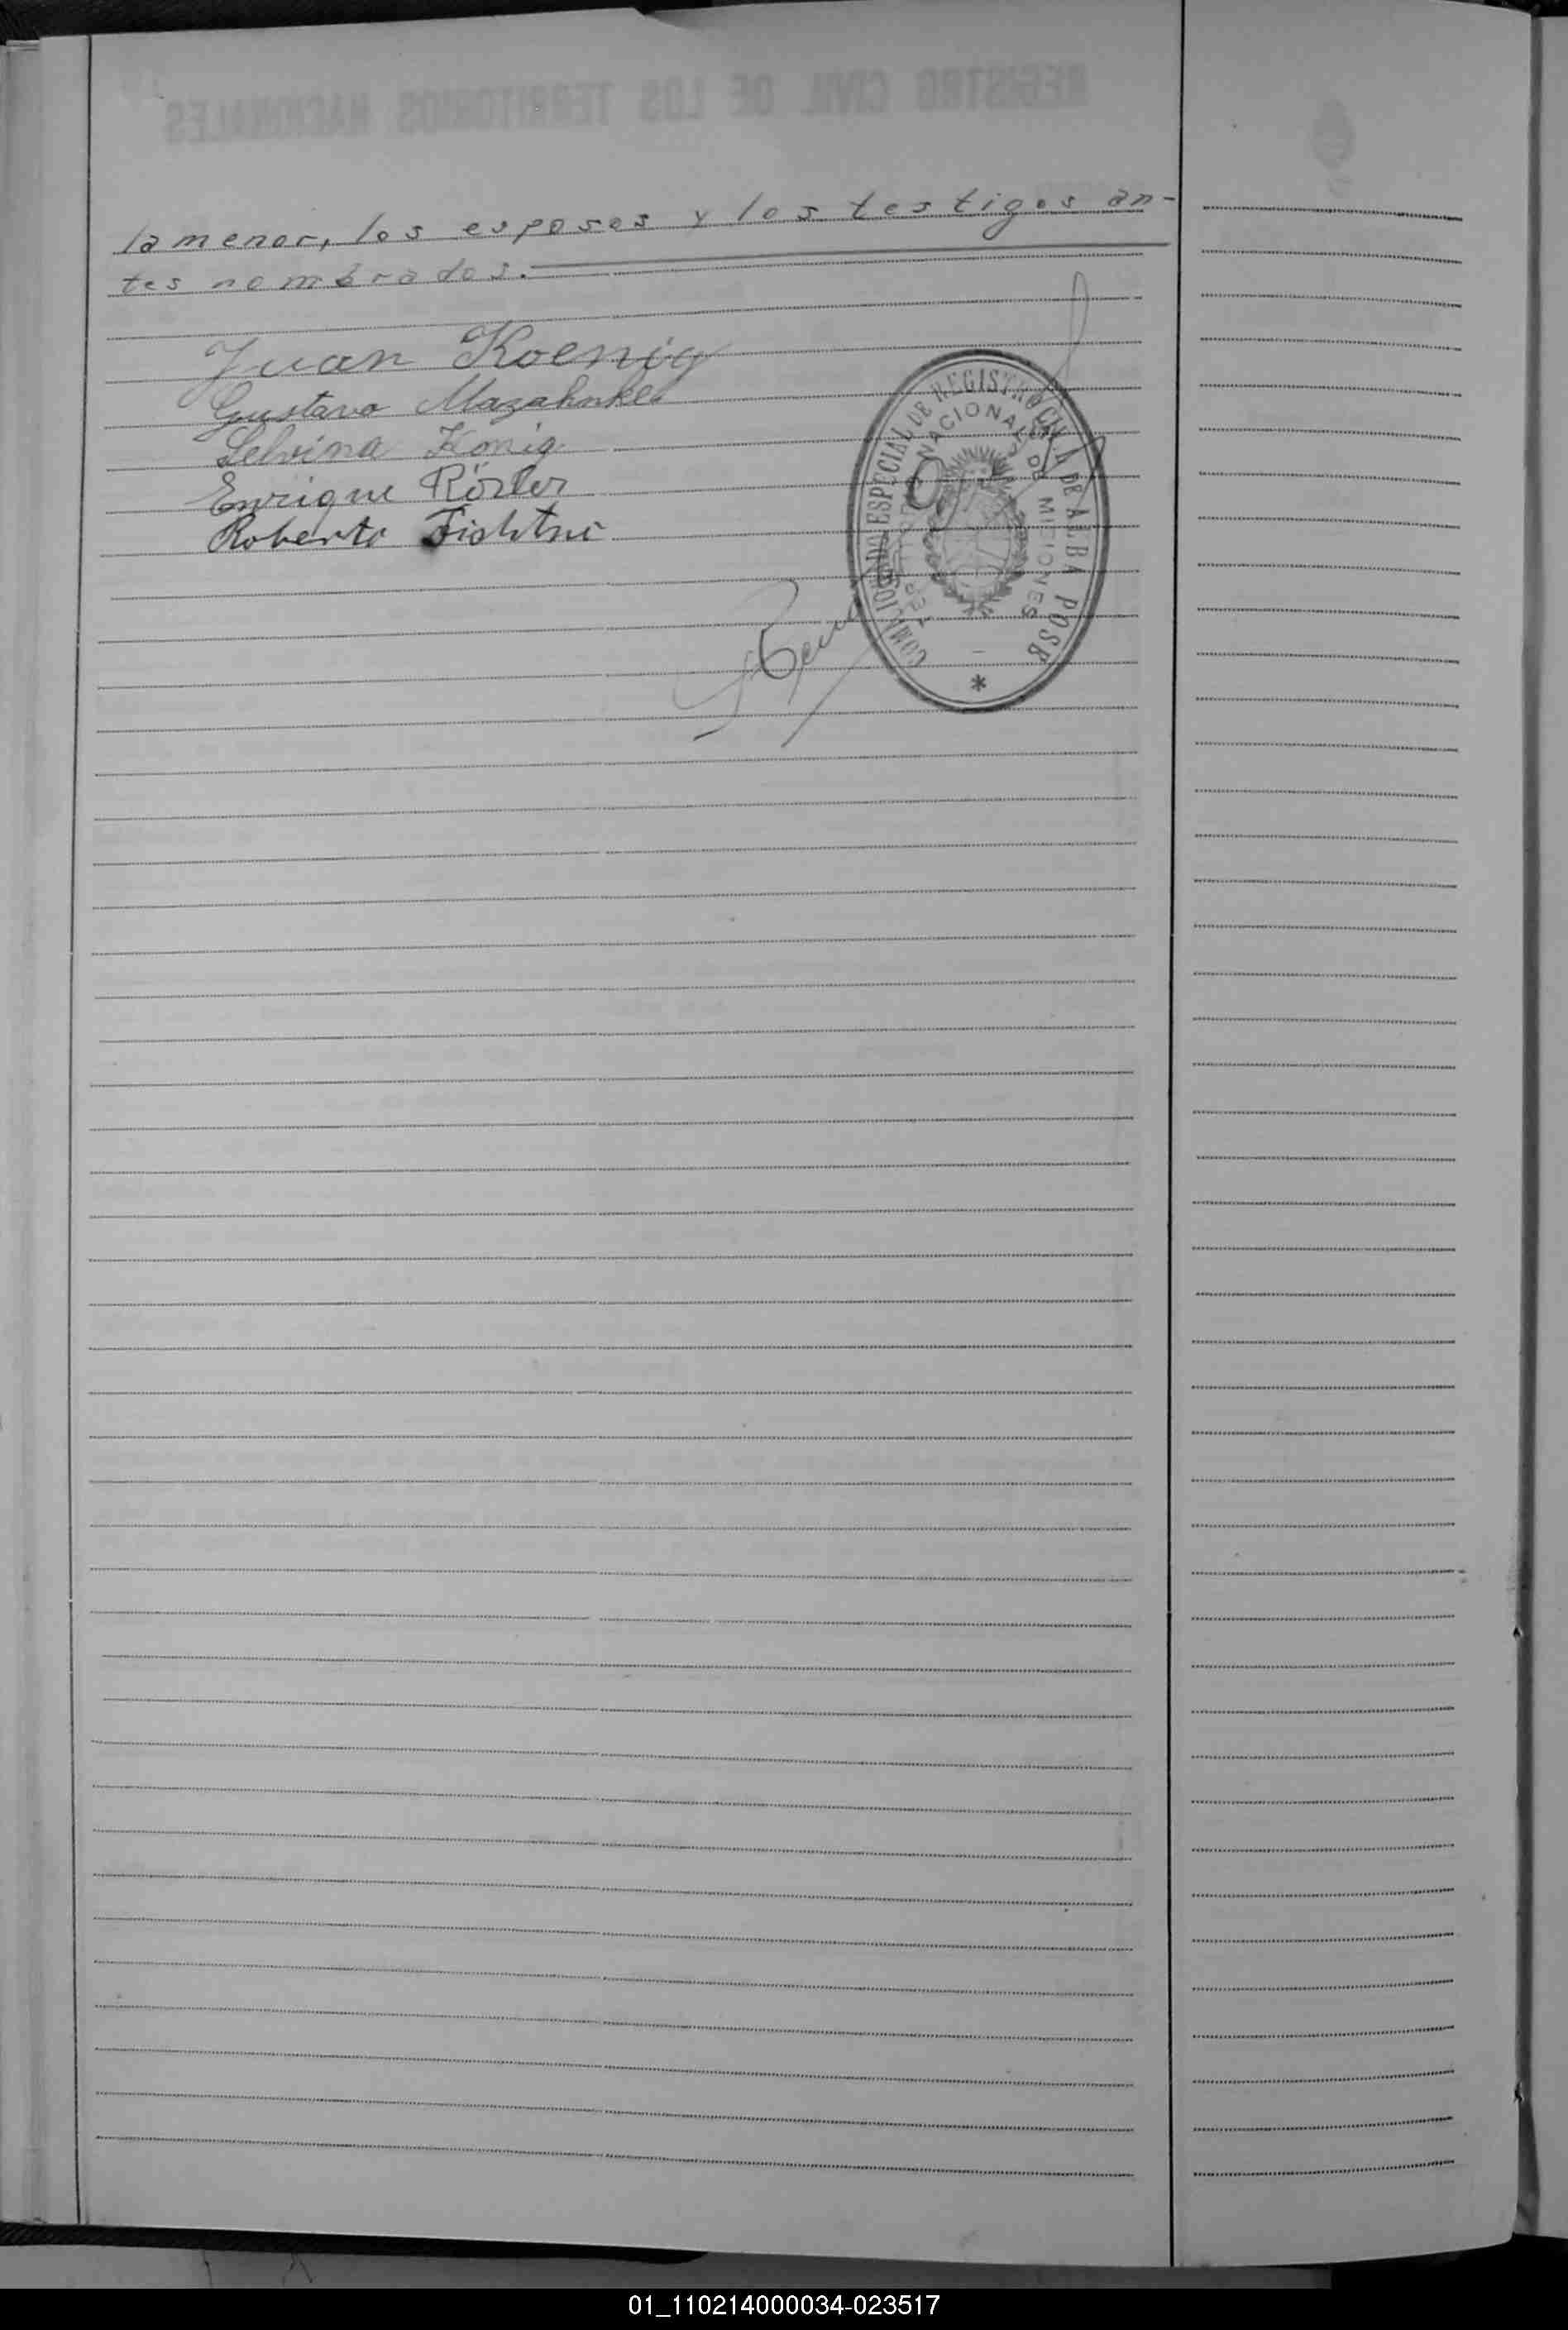 la menor, los esposos y los testigos an-
tes nombrados.
Juan Koenig
Gustavo Mazahnke
Selvina König
Enrique Rösler
Roberto
COMISIONADO ESPECIAL DE REGISTRO CIVIL DE ALBA POSE
NACIONAL DE MISIONES
01_110214000034-023517